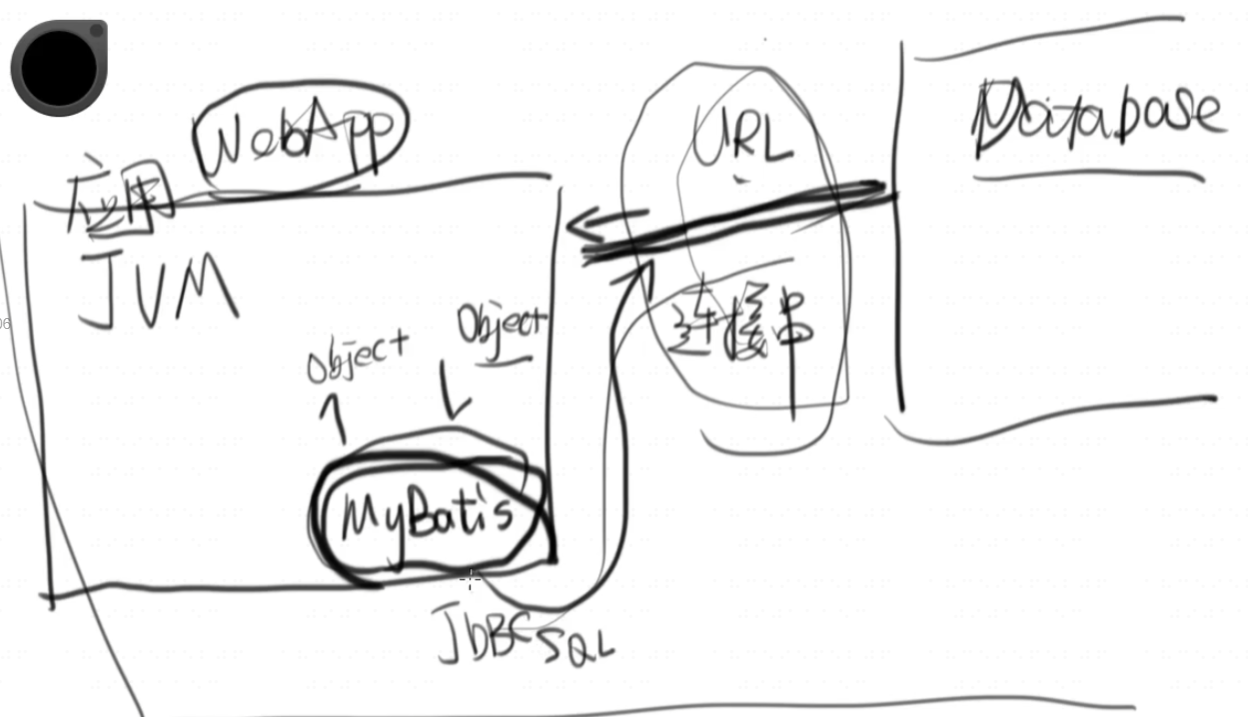 WebApp
应用
JVM
Object
Object
MyBatis
JDBC SQL
URL
连接串
Database
06